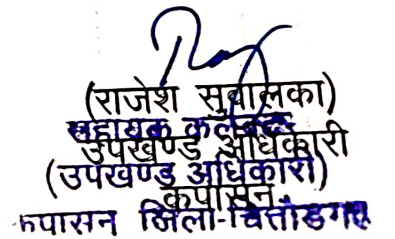 (राजेश सुवालका)
सहायक कलेक्टर
उपखण्ड अधिकारी
(उपखण्ड अधिकारी)
कपासन
कपासन जिला-चित्तोडगढ